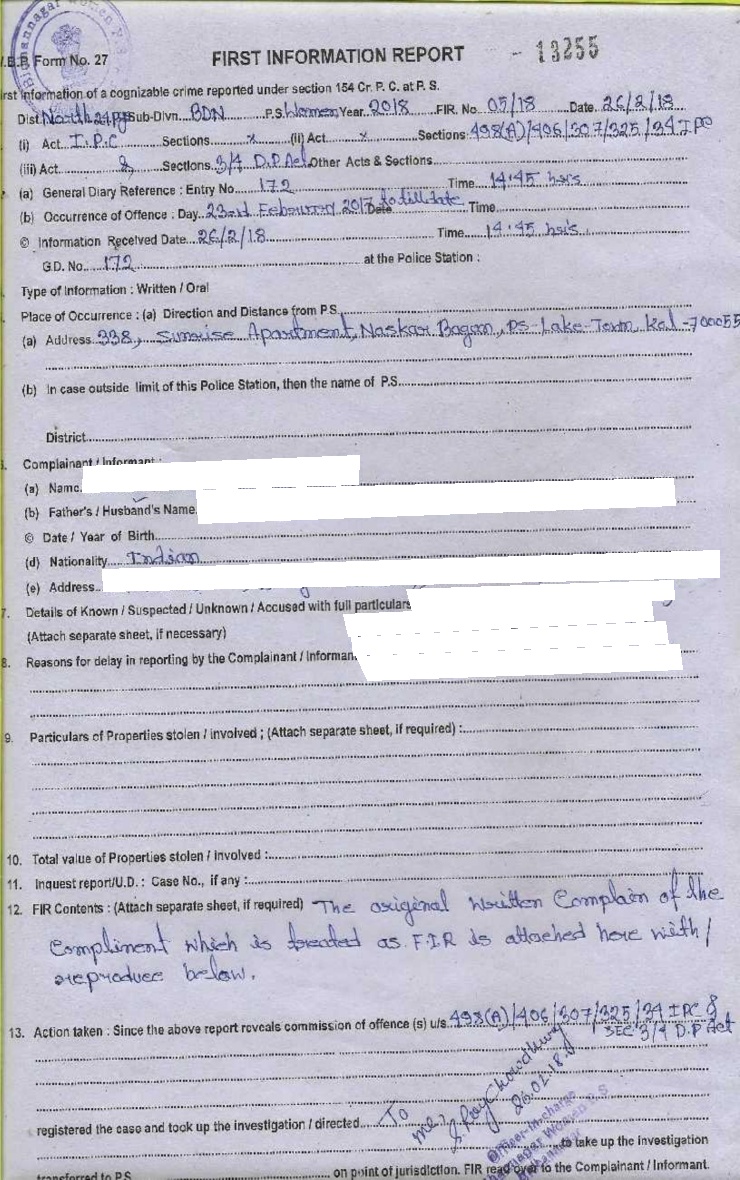 Bidhannagar Women P.S
W.B.P. Form No. 27
FIRST INFORMATION REPORT - 13255
First Information of a cognizable crime reported under section 154 Cr. P. C. at P. S.
Dist North 24 Pgs Sub-Divn. BDN P.S. Women Year 2018 FIR. No. 05/18 Date 26/2/18
(i) Act I.P.C Sections x (ii) Act x Sections 498(A)/406/307/325/34 IPC
(iii) Act & Sections 3/4 D.P Act Other Acts & Sections
(a) General Diary Reference : Entry No. 172 Time 14:45 hrs
(b) Occurrence of Offence : Day 23rd February 2017 to till date Date Time
© Information Received Date 26/2/18 Time 14:45 hrs
G.D. No. 172 at the Police Station :
Type of Information : Written / Oral
Place of Occurrence : (a) Direction and Distance from P.S.
(a) Address 338, Sunrise Apartment, Naskar Bagan, PS- Lake-Town, Kol -700055
(b) In case outside limit of this Police Station, then the name of P.S.
District
Complainant / Informant :
(a) Name
(b) Father's / Husband's Name
© Date / Year of Birth
(d) Nationality Indian
(e) Address
7. Details of Known / Suspected / Unknown / Accused with full particulars
(Attach separate sheet, if necessary)
8. Reasons for delay in reporting by the Complainant / Informan
9. Particulars of Properties stolen / involved ; (Attach separate sheet, if required) :
10. Total value of Properties stolen / involved :
11. Inquest report/U.D. : Case No., if any :
12. FIR Contents : (Attach separate sheet, if required) The original written Complain of the
Compliment which is treated as F.I.R is attached here with /
reproduce below.
13. Action taken : Since the above report reveals commission of offence (s) u/s 498(A)/406/307/325/34 IPC &
SEC 3/4 D.P Act
registered the case and took up the investigation / directed To me
S. Ray Chowdhury
26.02.18
Officer-in-charge
Women P.S
to take up the investigation
transferred to P.S. on point of jurisdiction. FIR read over to the Complainant / Informant.